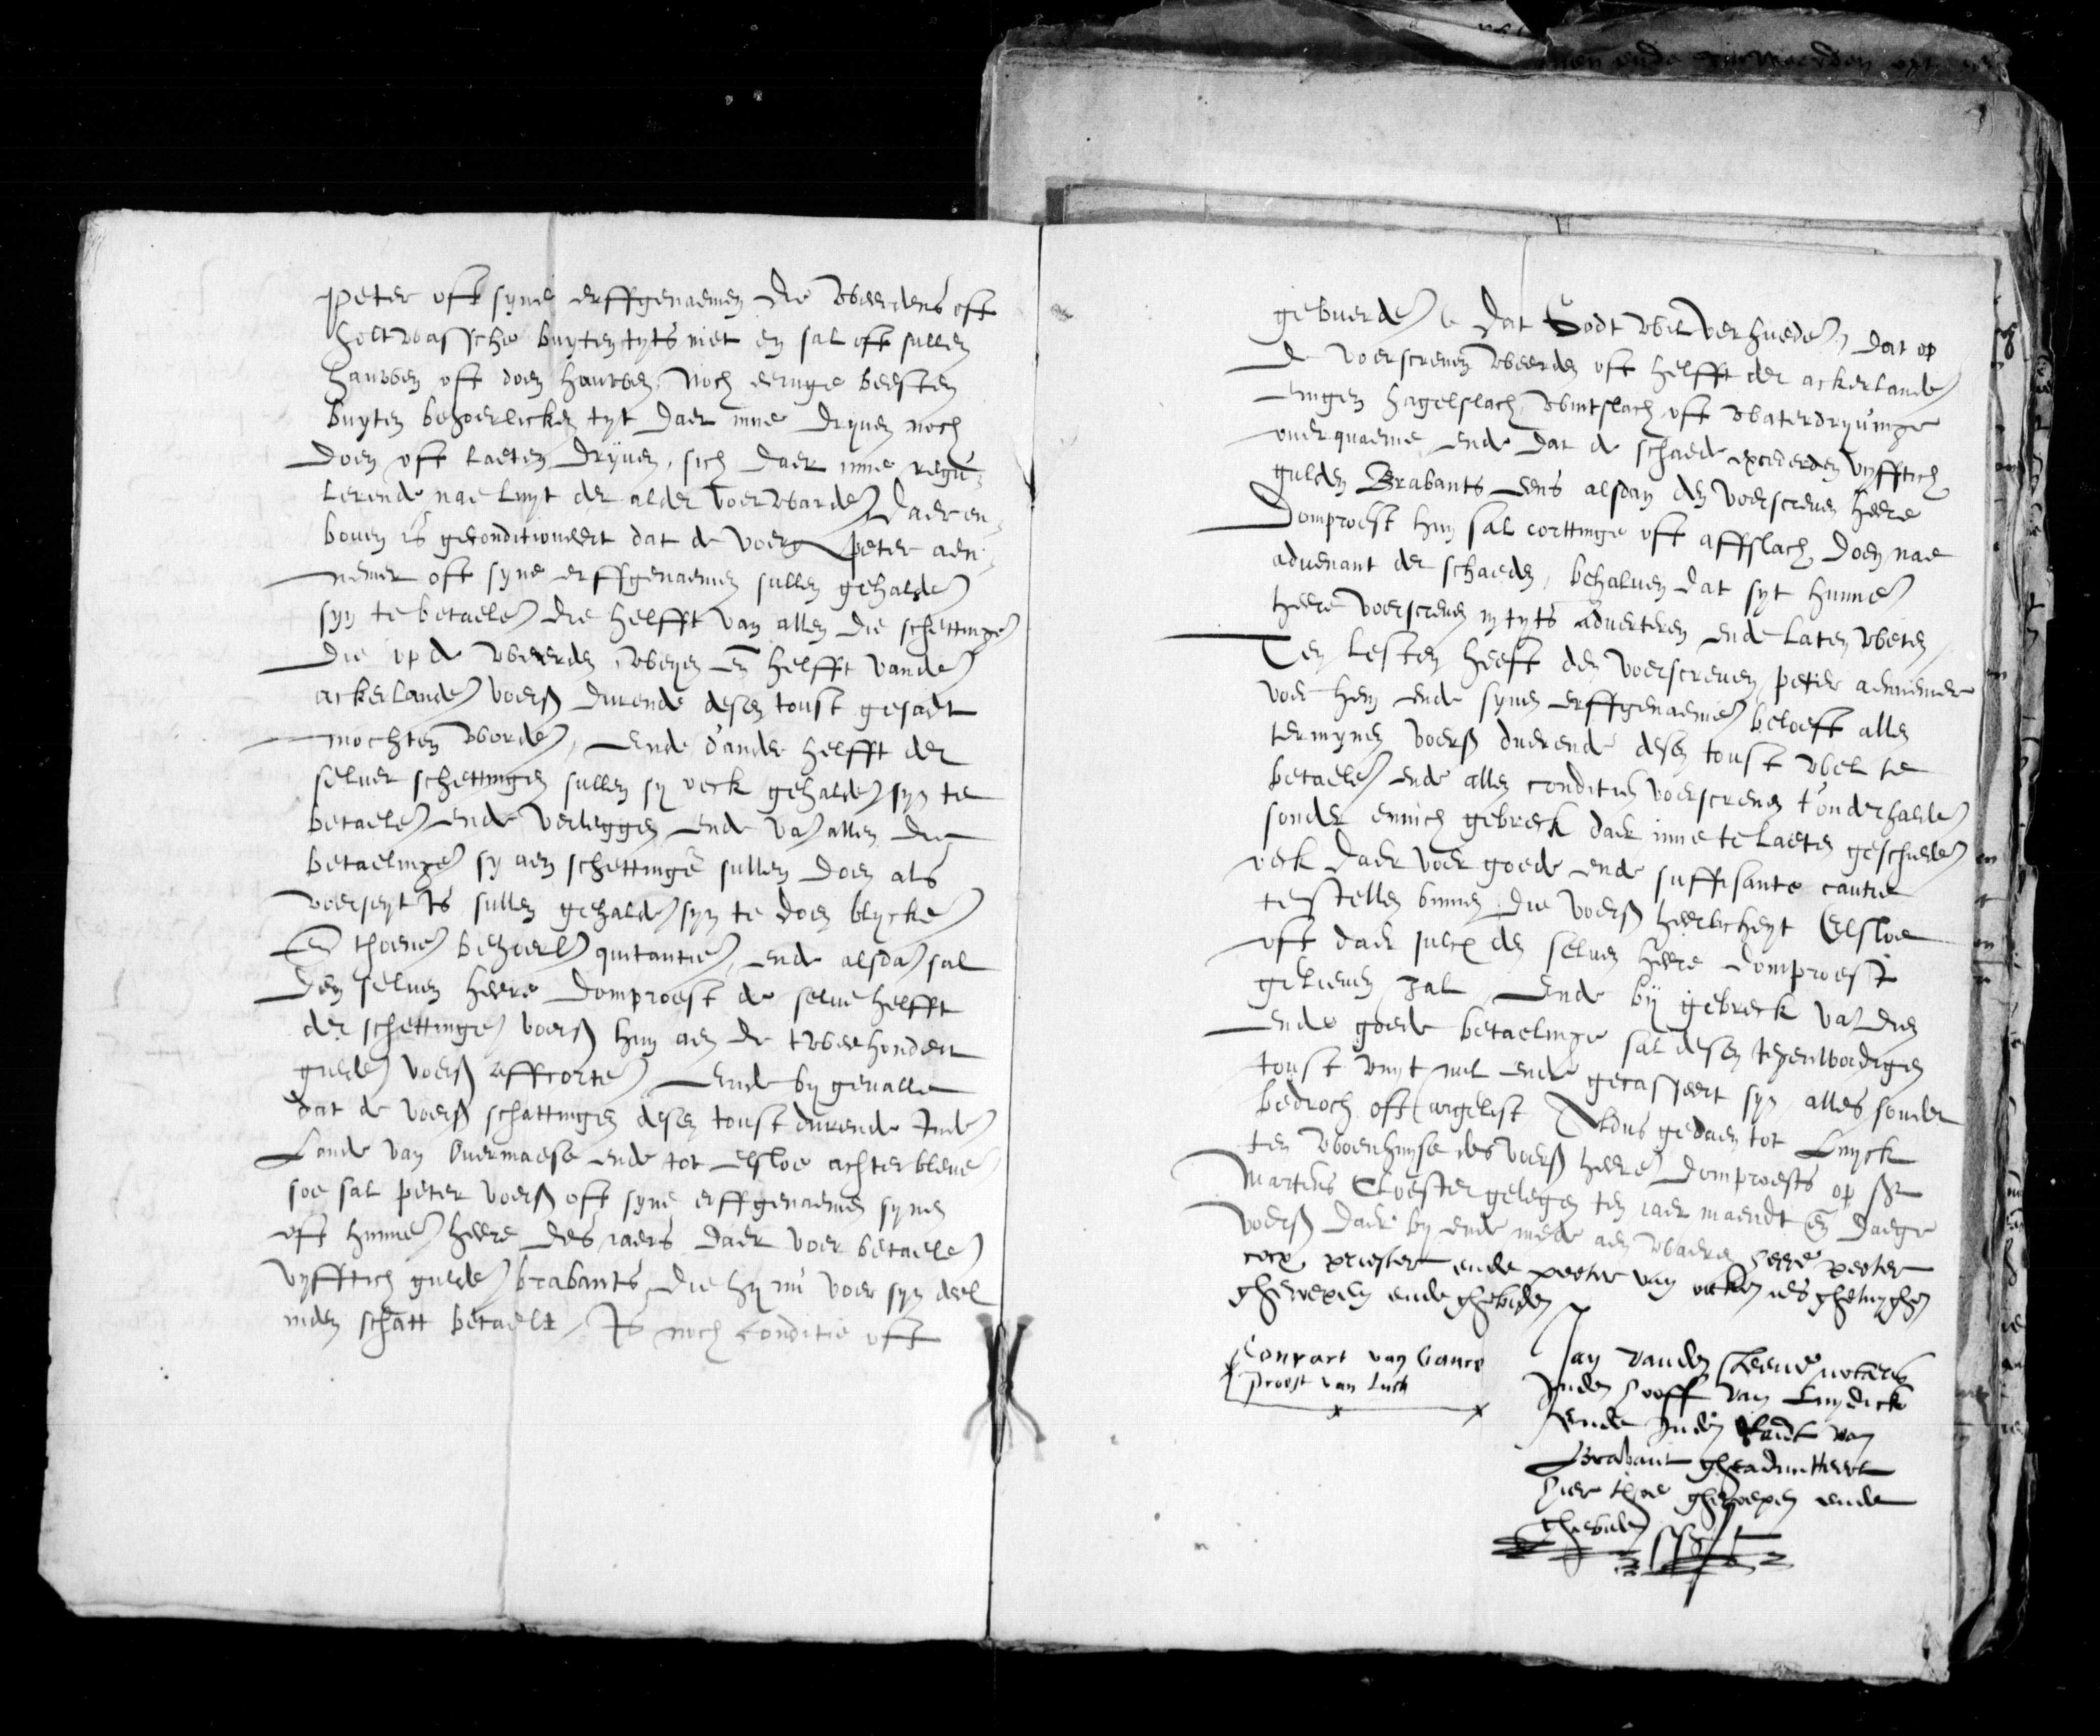 Peter oft syne erffgenaemen die weerdens oft
holtwassche buyten tyts niet en sal oft sullen
hauwen oft doen hauwen, noch eenige beesten
buyten behoerlicken tyt daer inne dryven noch
doen oft laeten dryven, sich daer inne regu¬
lerende nae luyt der alder voerwarden, Daeren¬
boven is geconditioneert dat de voers Peter aen¬
nemer oft syne erffgenaemen sullen gehalden
syn te betaelen die helfft van allen die schettingen
die op de weerden, weyen en helfft vanden
ackerlanden voers durende desen toust gesadt
mochten worden, Ende d'ander helfft der
selver schettingen sullen sy oeck gehalden syn te
betaelen ende verleggen ende van allen die
betaelingen sy aen schettinge sullen doen als
voerseyt is sullen gehalden syn te doen blycken
En thoenen behoerl quitantien, ende alsdan sal
den selven heere domproest de selve helfft
der schettingen voers hun aen de tweehondert
gulden voers affcorten, Ende by gevalle
dat de voers schattingen desen toust durende Inden
Lande van Overmaese ende tot Elsloe achterbleven
soe sal peter voers oft syne erffgenaemen synen
oft hunnen heere des iaers daer voer betaelen
vyfftich gulden brabants die hy nu voer syn deel
inden schatt betaelt, Is noch conditie oft
gebuerde dat Godt wil verhueden, dat op
de voerscreven weerden oft helfft der ackerlanden
eenigen hagelslach, wintslach oft waterdryvinge
overquaeme ende dat de schaede excedeerden vyfftich
gulden Brabants eens alsdan den voerscreven heere
Domproest hun sal corttinge oft affslach doen nae
advenant der schaeden, behalven dat syt hunnen
heere voerscreven in tyts adverteren ende laten weten
Ten lesten heeft den voerscreven peter aennemer
voer hem ende synen erffgenaemen beloeft allen
termynen voers duerende desen toust wel te
betaelen ende allen conditien voerscreven t'onderhalden
sonder ennich gebreck daer inne te laeten geschieden
oeck daer voer goede ende suffisante cautie
te stellen binnen die voers heerlicheyt Elsloe
oft daer sulcx den selven heere domproest
gelieven zal, Ende bij gebreck van dien
ende goede betaelinge sal desen tegenwordigen
toust vuyt nul ende gecasseert syn, alles sonder
bedroch oft argelist Aldus gedaen tot Luyck
ten woenhuyse des voers heeren Domproests op St
Martens Cloester gelegen ten iaer maendt en daege
voers daer by ende mede aen waeren heere peeter
cocx priester ende peeter van als ghetuyghen
gheroepen ende ghebeden
Conrart van Gavre
proest van Luck
Jan vanden Steene notaris
Inden hooff van Luydick
ende Inden landt van
Brabant gheadmitteert
hier thoe gheroepen ende
ghebeden